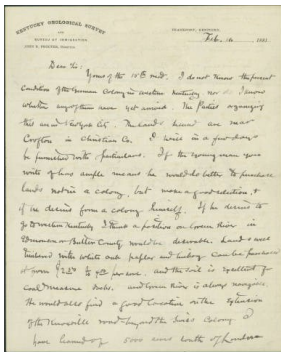 KENTUCKY GEOLOGICAL SURVEY
AND
BUREAU OF IMMIGRATION
JOHN R. PROCTER, DIRECTOR
FRANKFORT, KENTUCKY,
Feb. 1881
Dear Sir:
Yours of the 15th inst. I do not know the present
condition of the German Colony in western Kentucky nor do I know
whether any of them have yet arrived. The Parties organizing
this are in New York City. The lands are near
Crofton in Christian Co. I will in a few days
be furnished with particulars. If the young man you
write of has ample means he would do better to purchase
lands not in a colony, but make a good selection, &
if he desires form a colony himself. If he desires to
go to western Kentucky I think a position on Green River in
or Butler County would be desirable. Lands well
timbered with white oak poplar and hickory can be purchased
at from per acre. and the soil is excellent
coal measure soils. and Green River is always navigable.
He would also find a good location on the extension
of the Knoxville road beyond the Swiss Colony
5000 acres south of London